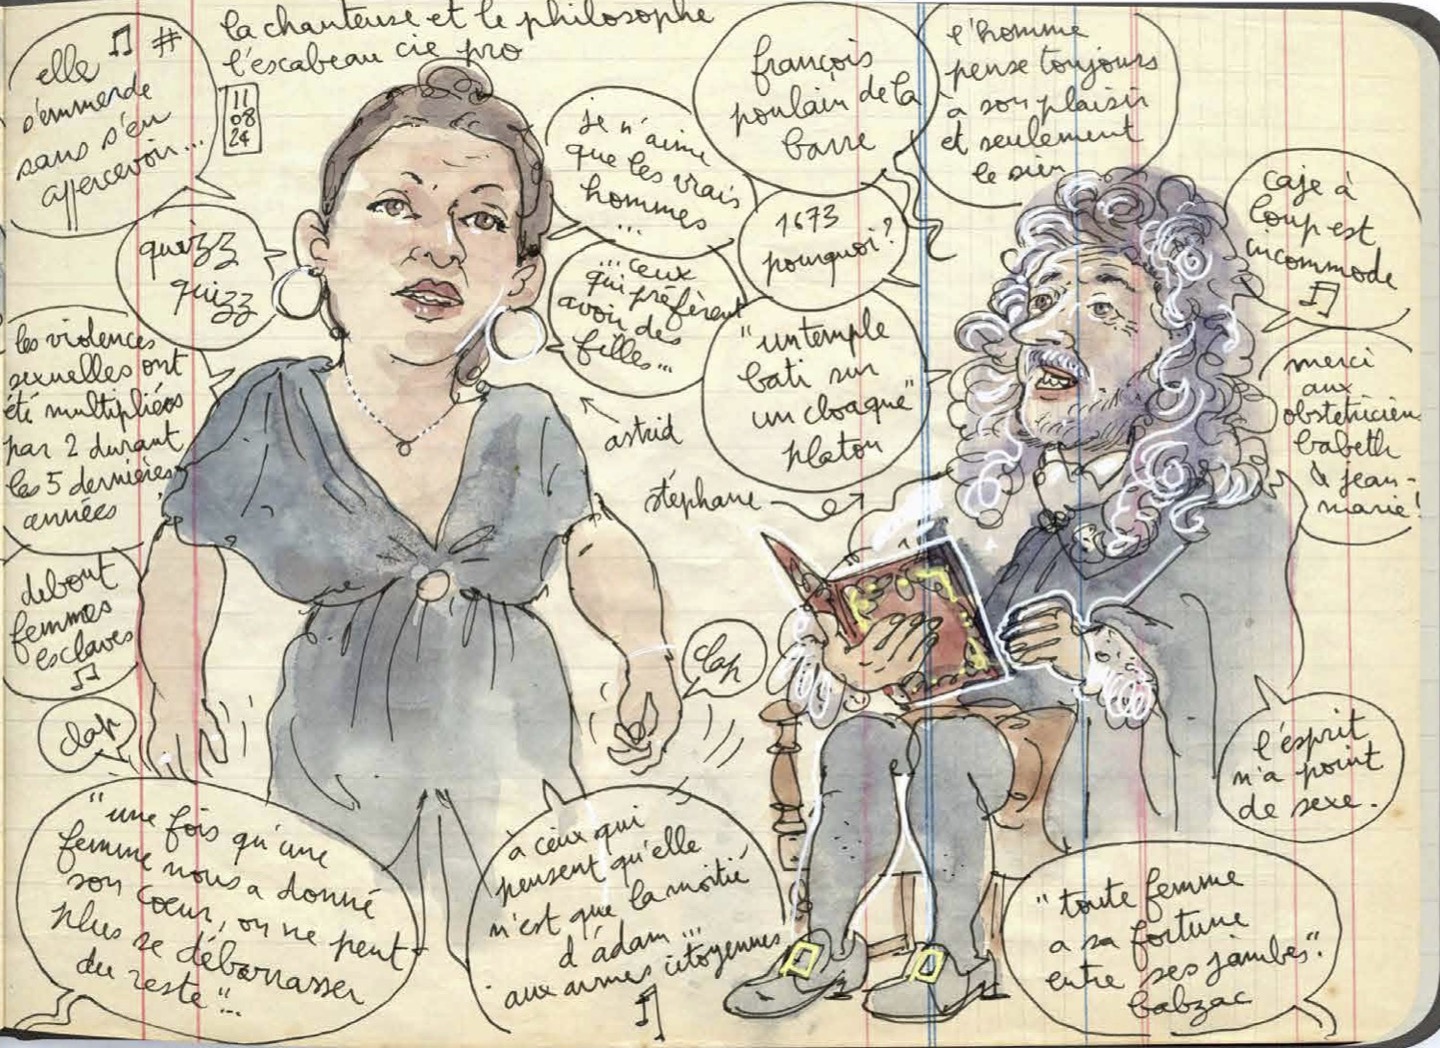 la chanteuse et le philosophe
l'escabeau cie pro
11
08
24
elle ♫ #
s'emmerde
sans s'en
appercevoir...
quizz
quizz
les violences
sexuelles ont
été multipliées
par 2 durant
les 5 dernières
années
debout
femmes
esclaves
♫
clap
"une fois qu'une
femme nous a donné
son coeur, on ne peut
plus se débarrasser
du reste"...
je n'aime
que les vrais
hommes
...
...ceux
qui préfèrent
avoir des
filles...
astrid
clap
à ceux qui
pensent qu'elle
n'est que la moitié
d'adam...
aux armes citoyennes
♫
françois
poulain de la
barre
1673
pourquoi?
"un temple
bati sur
un cloaque"
platon
stéphane
l'homme
pense toujours
à son plaisir
et seulement
le sien
caje à
loup est
incommode
♫
merci
aux
obstétricien
babeth
& jean-
marie!
l'esprit
n'a point
de sexe.
"toute femme
a sa fortune
entre ses jambes".
babzac